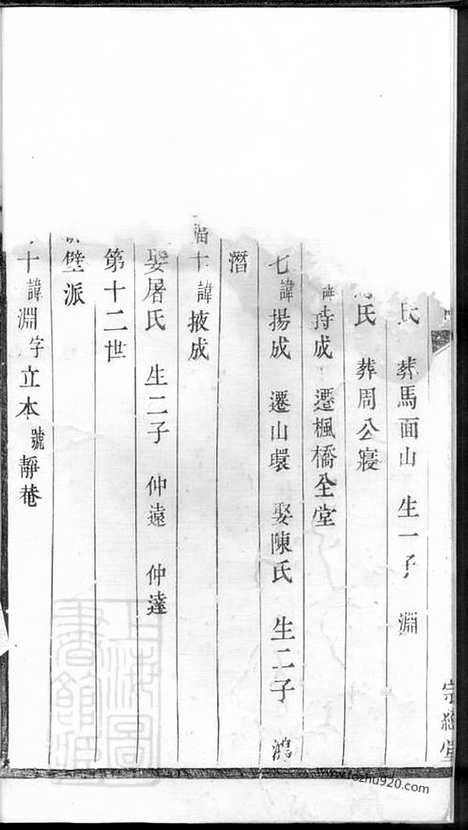 氏 葬馬面山 生一子 淵
氏 葬周公寝
諱持成 遷楓橋全堂
七 諱揚成 遷山環 娶陳氏 生二子 鴻
潛
十 諱掖成
娶屠氏 生二子 仲遠 仲達
第十二世
壁派
十 諱淵 字立本 號靜菴
上海圖書館藏
www.jiazhu920.com